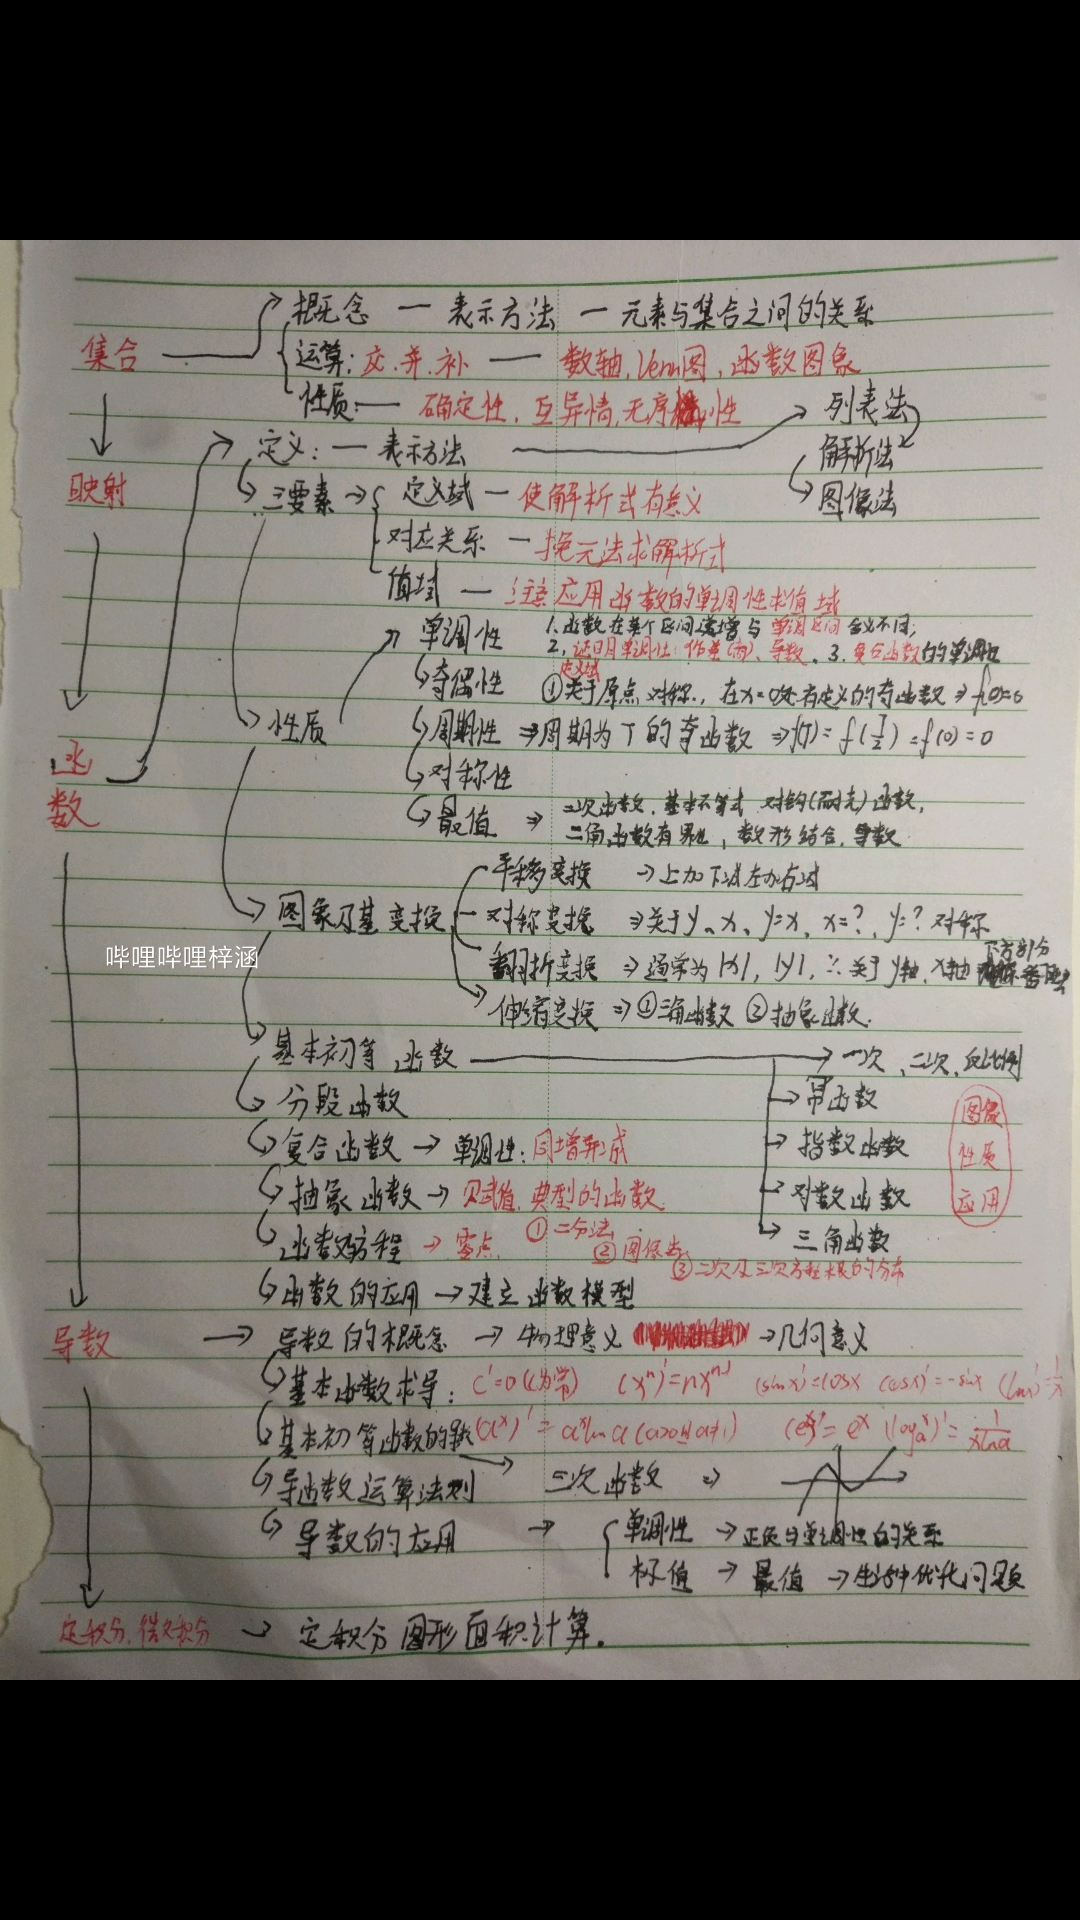 概念 — 表示方法 — 元素与集合之间的关系
集合
运算: 交.并.补 — 数轴, Venn图, 函数图象
性质: — 确定性, 互异情, 无序性
列表法
定义: — 表示方法
解析法
映射
三要素 → 定义域 — 使解析式有意义
图像法
对应关系 — 换元法求解析式
值域 — 注意应用函数的单调性求值域
单调性
1. 函数在某个区间递增与单调区间含义不同;
2, 证明单调性: 作差(商)、导数. 3. 复合函数的单调性
定义域
奇偶性 ①关于原点对称, 在x=0处有定义的奇函数 ⇒ f(0)=0
性质
周期性 ⇒ 周期为T的奇函数 ⇒ f(T) = f(T/2) = f(0) = 0
函数
对称性
最值 ⇒ 二次函数, 基本不等式 对钩(耐克)函数,
三角函数有界性, 数形结合, 导数
平移变换 → 上加下减左加右减
图象及基变换
对称变换 ⇒ 关于y、x、y=x, x=?, y=? 对称
哔哩哔哩梓涵
下方部分
翻折变换 ⇒ 通常为|x|, |y|, ∵ 关于y轴, x轴
伸缩变换 ⇒ ①三角函数 ②抽象函数.
基本初等函数 → 一次、二次, 反比例
分段函数
幂函数
图像
性质
应用
复合函数 → 单调性: 同增异减
指数函数
抽象函数 → 赋值, 典型的函数
对数函数
函数与方程 → 零点 ①二分法
②图像法
三角函数
③二次及三次方程根的分布
函数的应用 → 建立函数模型
导数 → 导数的概念 → 物理意义 → 几何意义
基本函数求导: C'=0 (C为常) (xⁿ)'=nxⁿ⁻¹ (sinx)'=cosx (cosx)'=-sinx (lnx)'=1/x
基本初等函数的导 (aˣ)'=aˣlna (a>0且a≠1) (eˣ)'=eˣ (logₐx)'=1/xlna
导函数运算法则
三次函数 ⇒
导数的应用 → 单调性 → 正负与单调性的关系
极值 → 最值 → 生活中优化问题
定积分, 微积分 → 定积分图形面积计算.